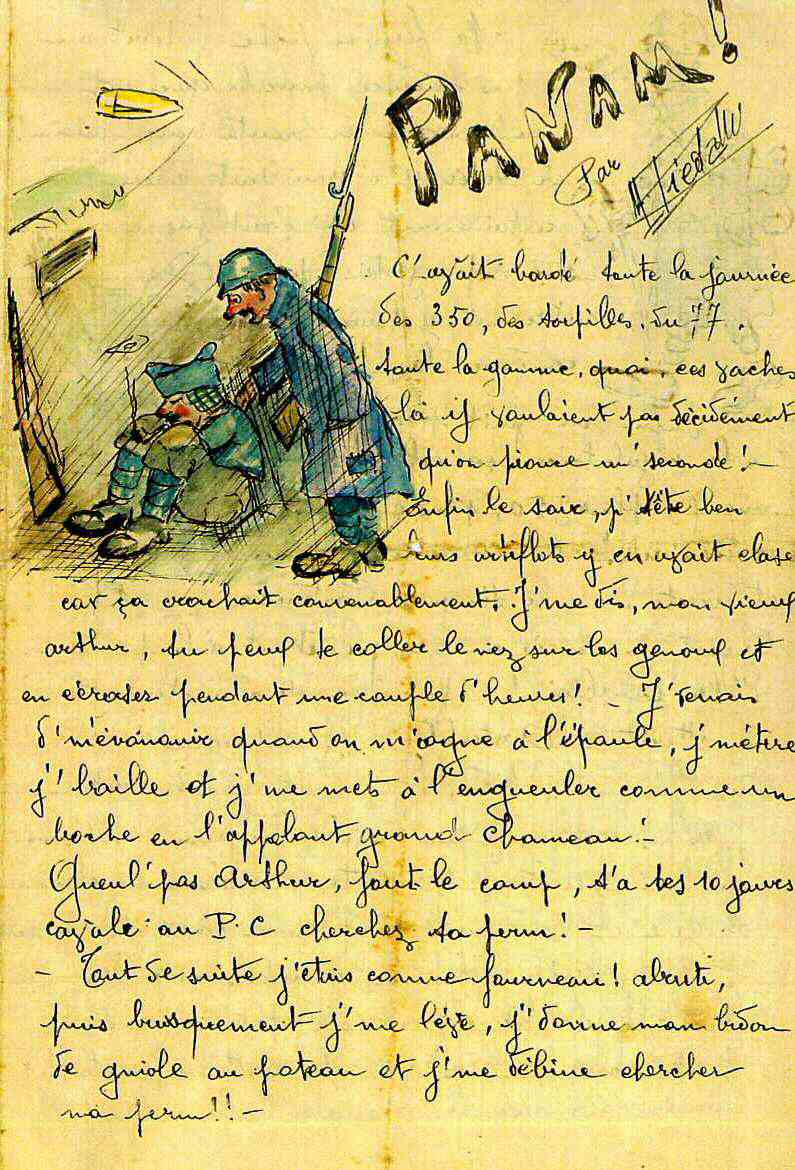 PANAM!
Par
C'avait bardé toute la journée
des 350, des torpilles, du 77.
toute la gamme, quoi, ces vaches
là if voulaient pas décidément
qu'on pionce un' seconde! -
Enfin le soir, p't'ête ben
leurs artiflots y en avait classe
car ça crachait convenablement. J'me dis, mon vieux
arthur, tu peux te coller le nez sur les genoux et
en écraser pendant une couple d'heures! - J'venais
d'm'évanouir quand on m'cogne à l'épaule, j'm'étire
j'baille et j'me mets à l'engueuler comme un
boche en l'appelant grand chameau! -
Gueul'pas Arthur, fout le camp, t'a tes 10 jours
cavale au P.C cherchez ta perm! -
- Tout de suite j'étais comme fourneau! abruti,
puis brusquement j'me lève, j'donne mon bidon
de gniole au poteau et j'me débine chercher
ma perm!! -